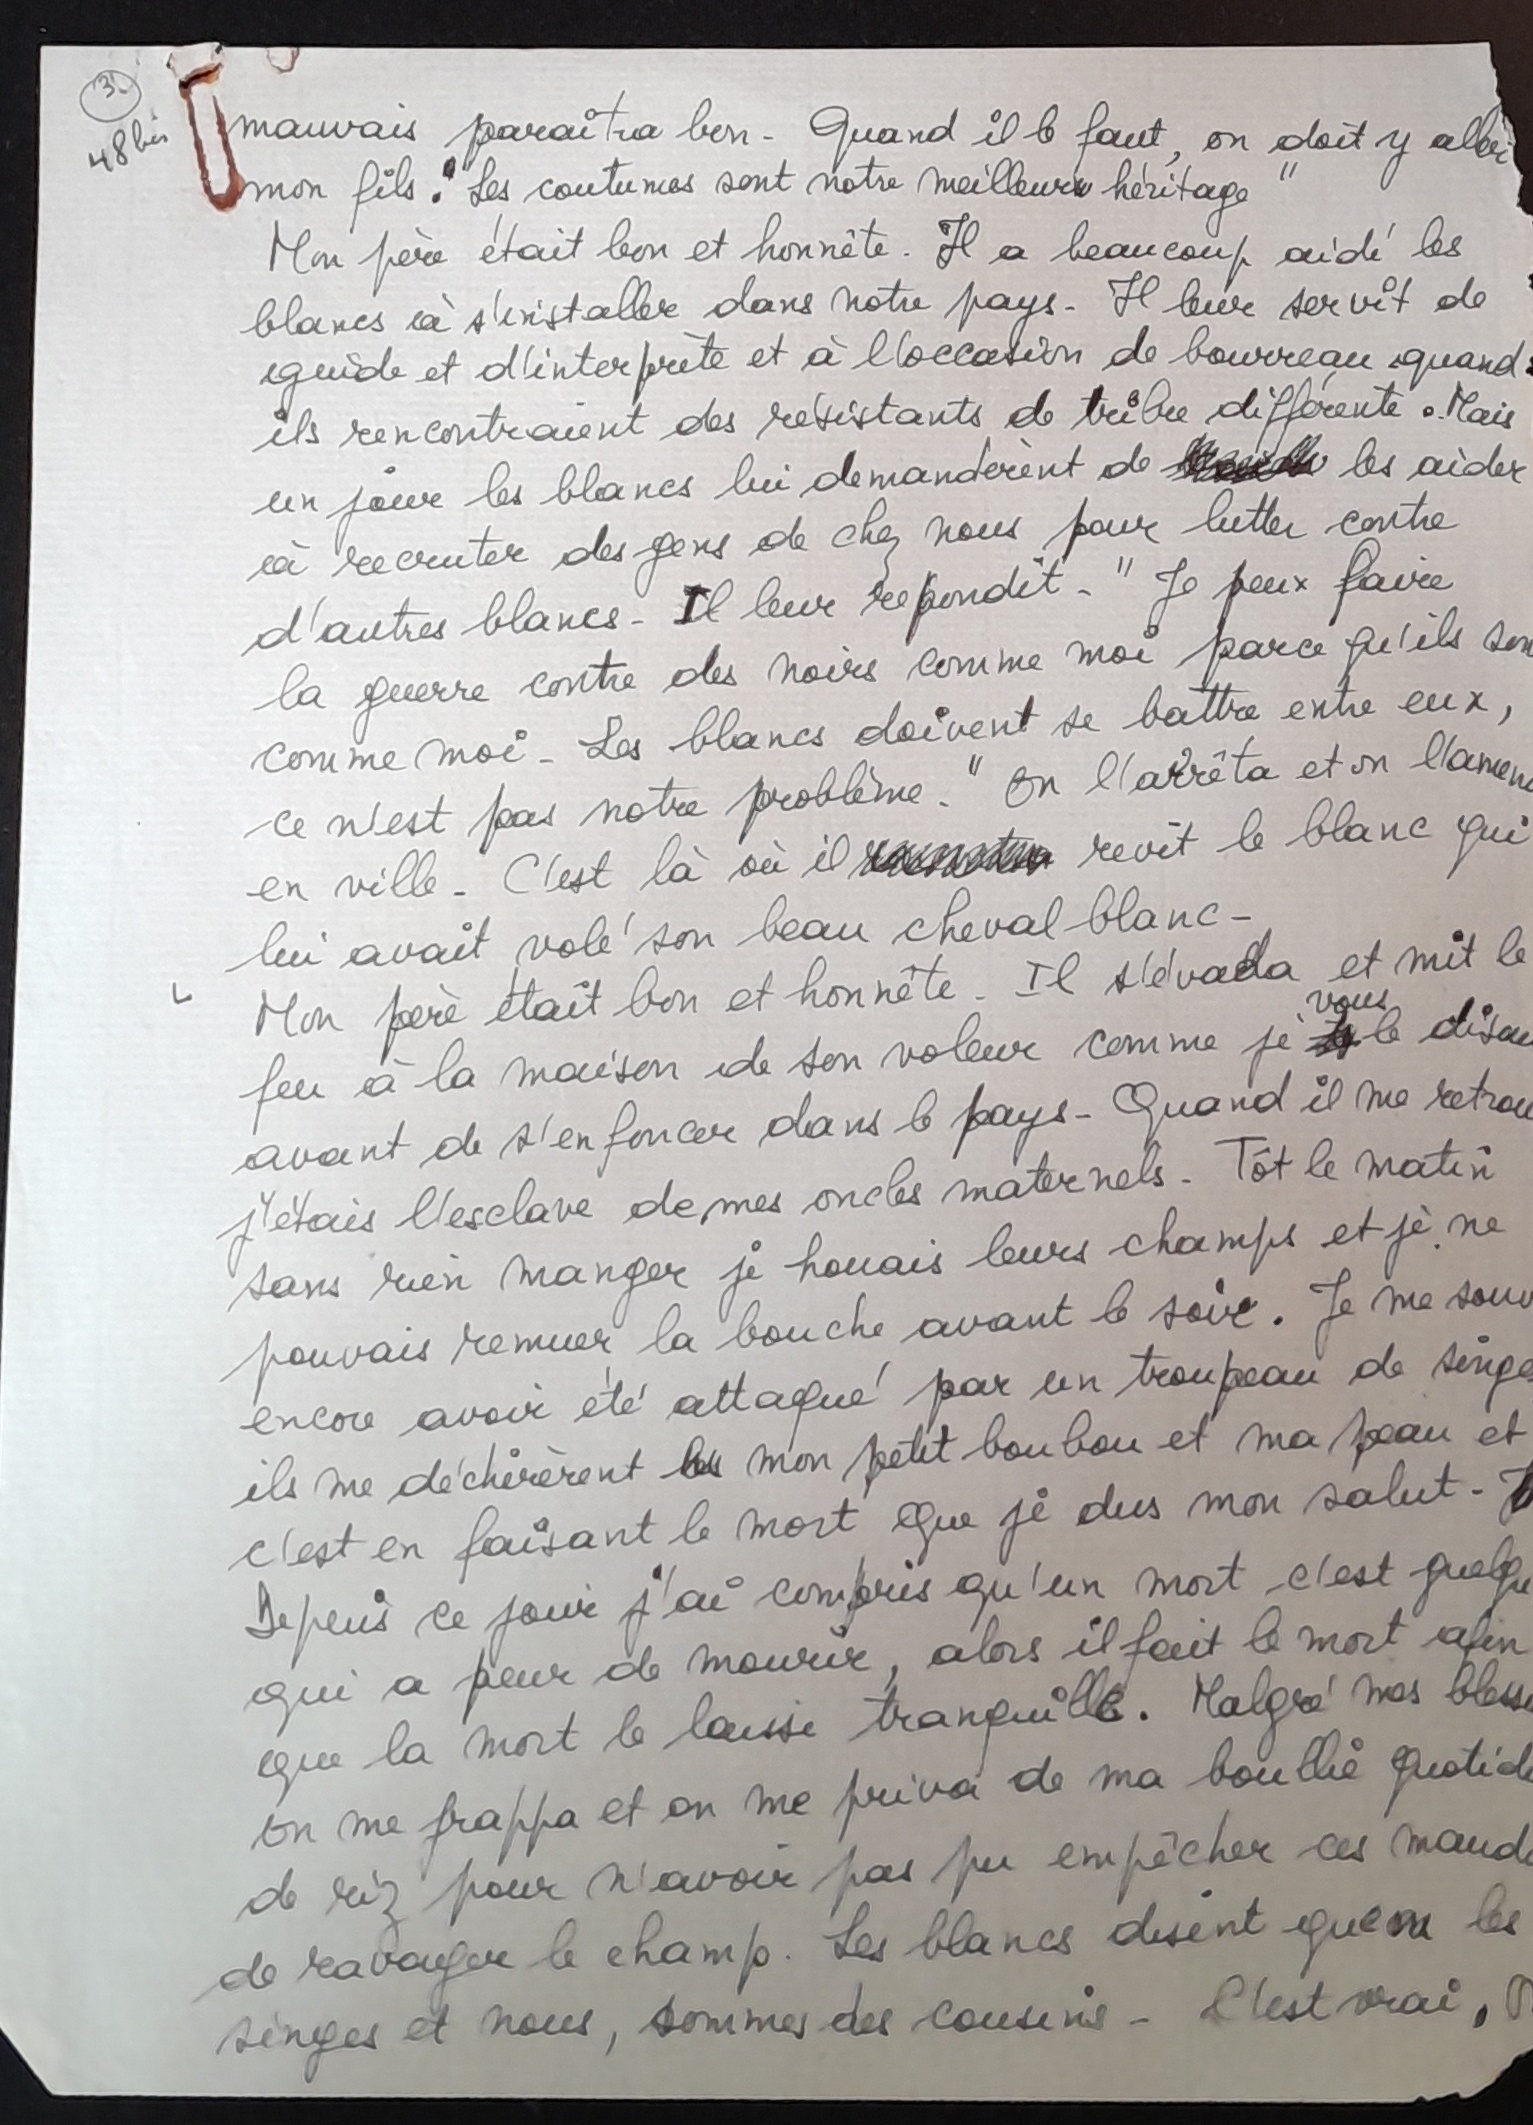 3
48 bis
mauvais paraîtra bon - Quand il le faut, on doit y aller
mon fils : "Les coutumes sont notre meilleur héritage"
Mon père était bon et honnête. Il a beaucoup aidé les
blancs à s'installer dans notre pays - Il leur servit de
guide et d'interprète et à l'occasion de bourreau quand
ils rencontraient des résistants de tribu différente. Mais
un jour les blancs lui demandèrent de les aider
à recruter des gens de chez nous pour lutter contre
d'autres blancs - Il leur repondit - " Je peux faire
la guerre contre des noirs comme moi parce qu'ils son
comme moi - Les blancs doivent se battre entre eux,
ce n'est pas notre problème. " On l'arrêta et on l'amen
en ville - C'est là où il revit le blanc qui
lui avait volé son beau cheval blanc -
Mon père était bon et honnête - Il s'évada et mit le
feu à la maison de son voleur comme je vous le disai
avant de s'enfoncer dans le pays - Quand il me retrou
j'étais l'esclave de mes oncles maternels - Tôt le matin
sans rien manger je houais leurs champs et je ne
pouvais remuer la bouche avant le soir. Je me souv
encore avoir été attaqué par un troupeau de singe
ils me déchirèrent mon petit boubou et ma peau et
c'est en faisant le mort que je dus mon salut -
Depuis ce jour j'ai compris qu'un mort c'est quelqu
qui a peur de mourir, alors il fait le mort afin
que la mort le laisse tranquille. Malgré mes bless
on me frappa et on me priva de ma boullie quotid
de riz pour n'avoir pas pu empêcher ces maud
de ravager le champ. Les blancs disent que les
singes et nous, sommes des cousins - C'est vrai,